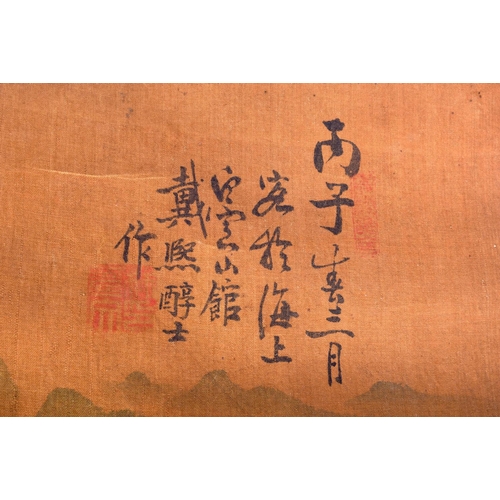 丙子春三月
客於海上
白雲山館
戴熙醇士
作